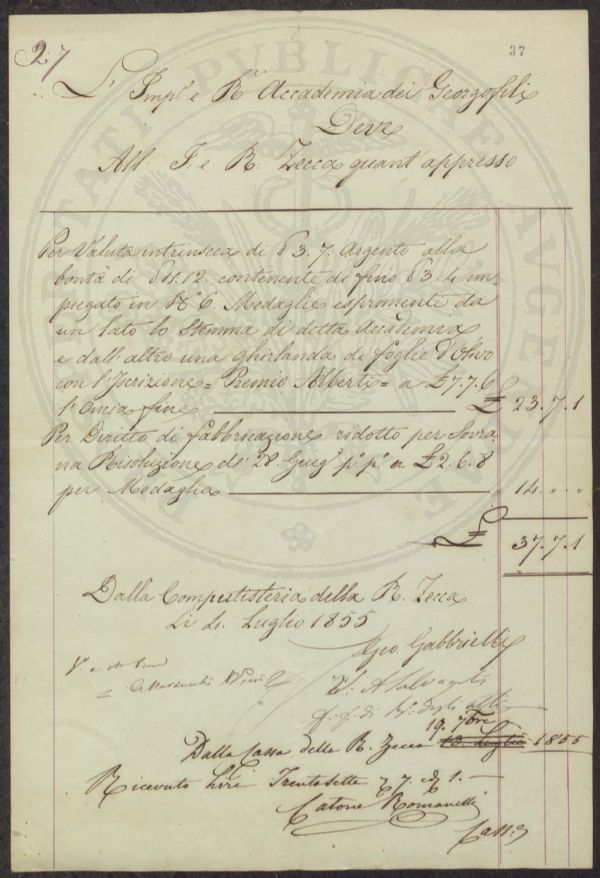 27
37
L' Imp.e e R. Accademia dei Georgofili
Deve
All' I. e R. Zecca quant' appresso
Per Valuta intrinseca di 3. 7. Argento alla
bontà di 11.12. contenente di fino 3. 4. im-
piegato in N.° 6. Medaglie esprimente da
un lato lo Stemma di detta Accademia
e dall' altro una ghirlanda di foglie d'Olivo
con l'Iscrizione = Premio Alberti = a £ 7.7.6
l'Oncia fine £ 23.7.1
Per Diritto di fabbricazione ridotto per Sovra
na Risoluzione de' 28. Giug.° p.° p.° a £ 2.6.8
per Medaglia " 14. " "
£ 37.7.1
Dalla Computisteria della R. Zecca
Li 4. Luglio 1855
Gabbrielli
V.
f.f. di degli
19. 7bre
Dalla Cassa della R. Zecca 13. Luglio 1855
Ricevuto Lire Trentasette 7. 1.
Catone Romanelli
Cass.e